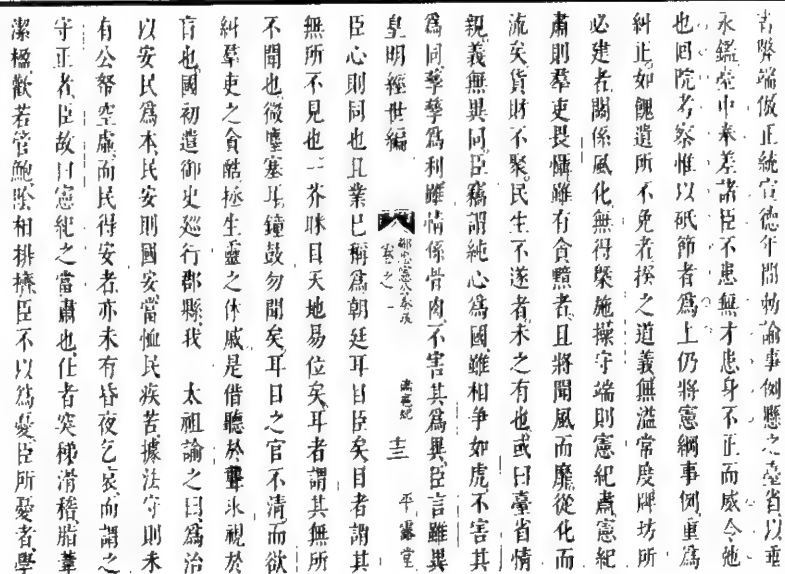 弊端倣正統宣德年間勑諭事例懸之臺省以垂
永鑑臺中奉差諸臣不患無才患身不正而威令弛
也回院考察惟以砥節者爲上仍將憲綱事例重爲
糾正如餽遺所不免者揆之道義無溢常度牌坊所
必建者關係風化無得槩施操守端則憲紀肅憲紀
肅則羣吏畏懾雖有貪黷者且將聞風而靡從化而
流矣貨財不聚民生不遂者未之有也或曰臺省情
親義無異同臣竊謂純心爲國雖相爭如虎不害其
爲同孳孳爲利雖情係骨肉不害其爲異臣言雖異
皇明經世編
卷之一
肅憲紀
十三
平露堂
臣心則同也且業已稱爲朝廷耳目臣矣目者謂其
無所不見也一芥眯目天地易位矣耳者謂其無所
不聞也微塵塞耳鐘鼓勿聞矣耳目之官不清而欲
糾羣吏之貪酷拯生靈之休戚是借聽於聾求視於
盲也國初遣御史廵行郡縣我 太祖諭之曰爲治
以安民爲本民安則國安當恤民疾苦據法守則未
有公帑空虛而民得安者亦未有昏夜乞哀而謂之
守正者臣故曰憲紀之當肅也仕者突稊滑稽脂葦
潔楹歡若管鮑陰相排擠臣不以爲憂臣所憂者學